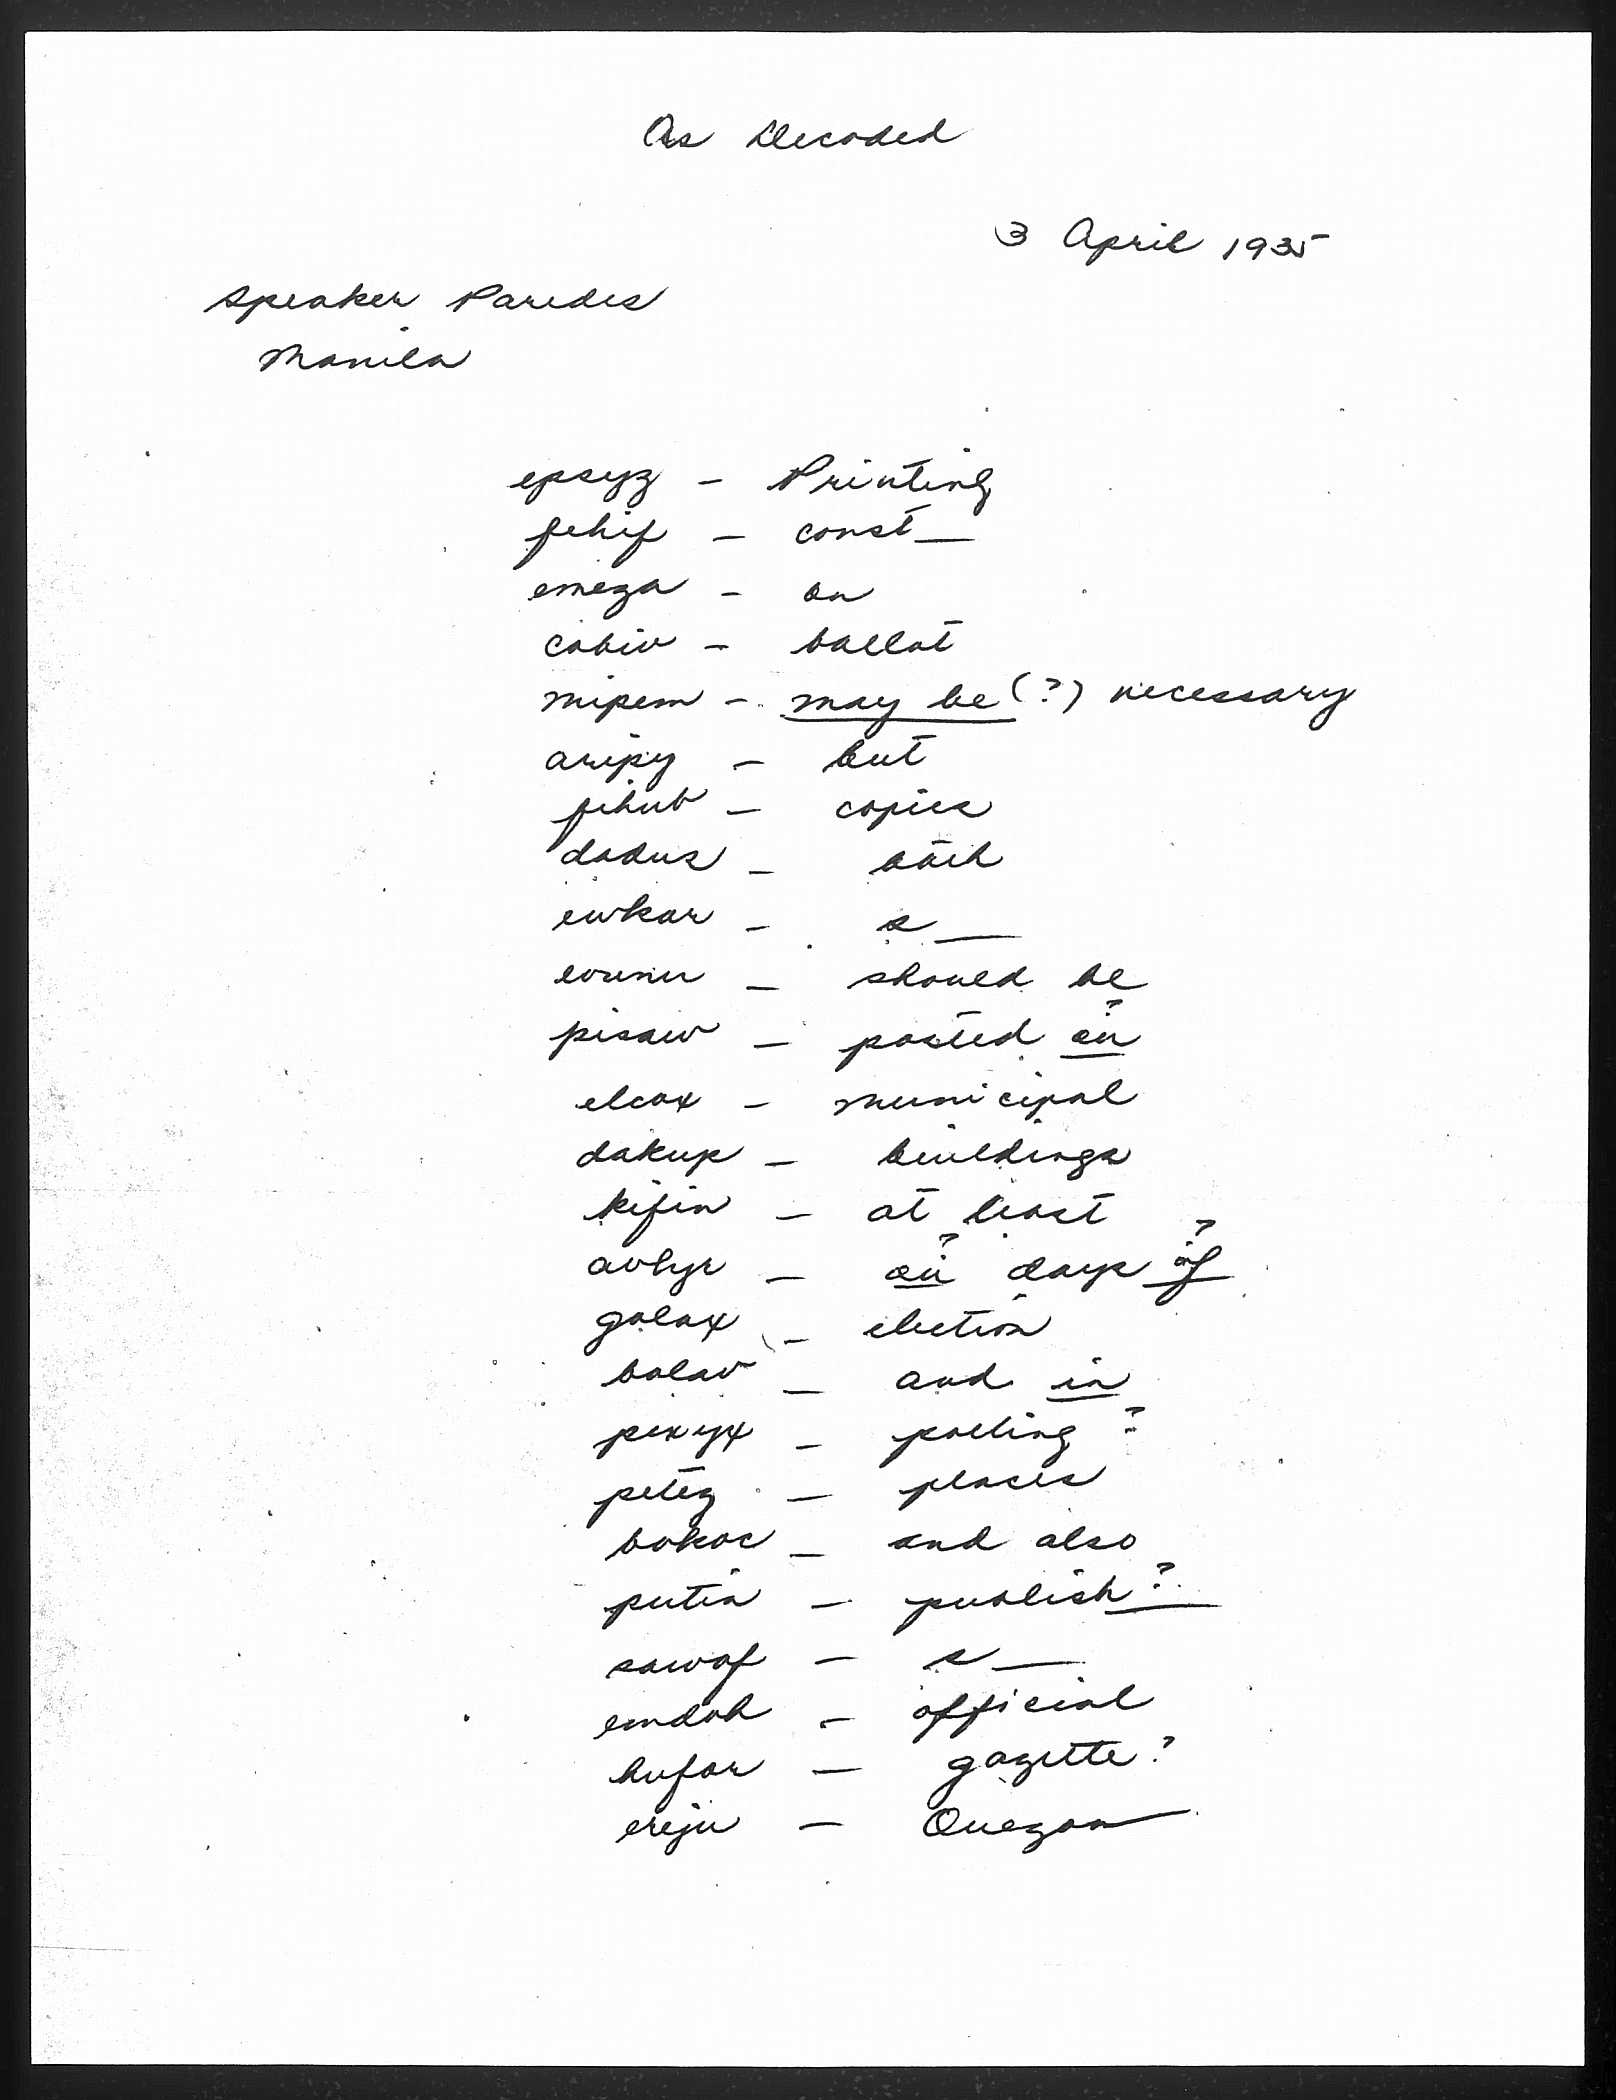 As Decoded
3 April 1935
Speaker Paredes
Manila
epsyz - Printing
fehif - const_
emega - on
cabiv - ballot
mipem - may be (?) necessary
aripy - but
fihub - copies
dodus - both
ewkar - s_
evunu - should be
pisaw - posted on ?
elcox - municipal
dakup - buildings
kifin - at least
avbyr - on ? days of ?
galax - election
balav - and in
pexyx - polling ?
petez - places
bokoc - and also
putin - publish ?
sawof - s_
emdoh - official
hufor - gazette ?
ereju - Quezon